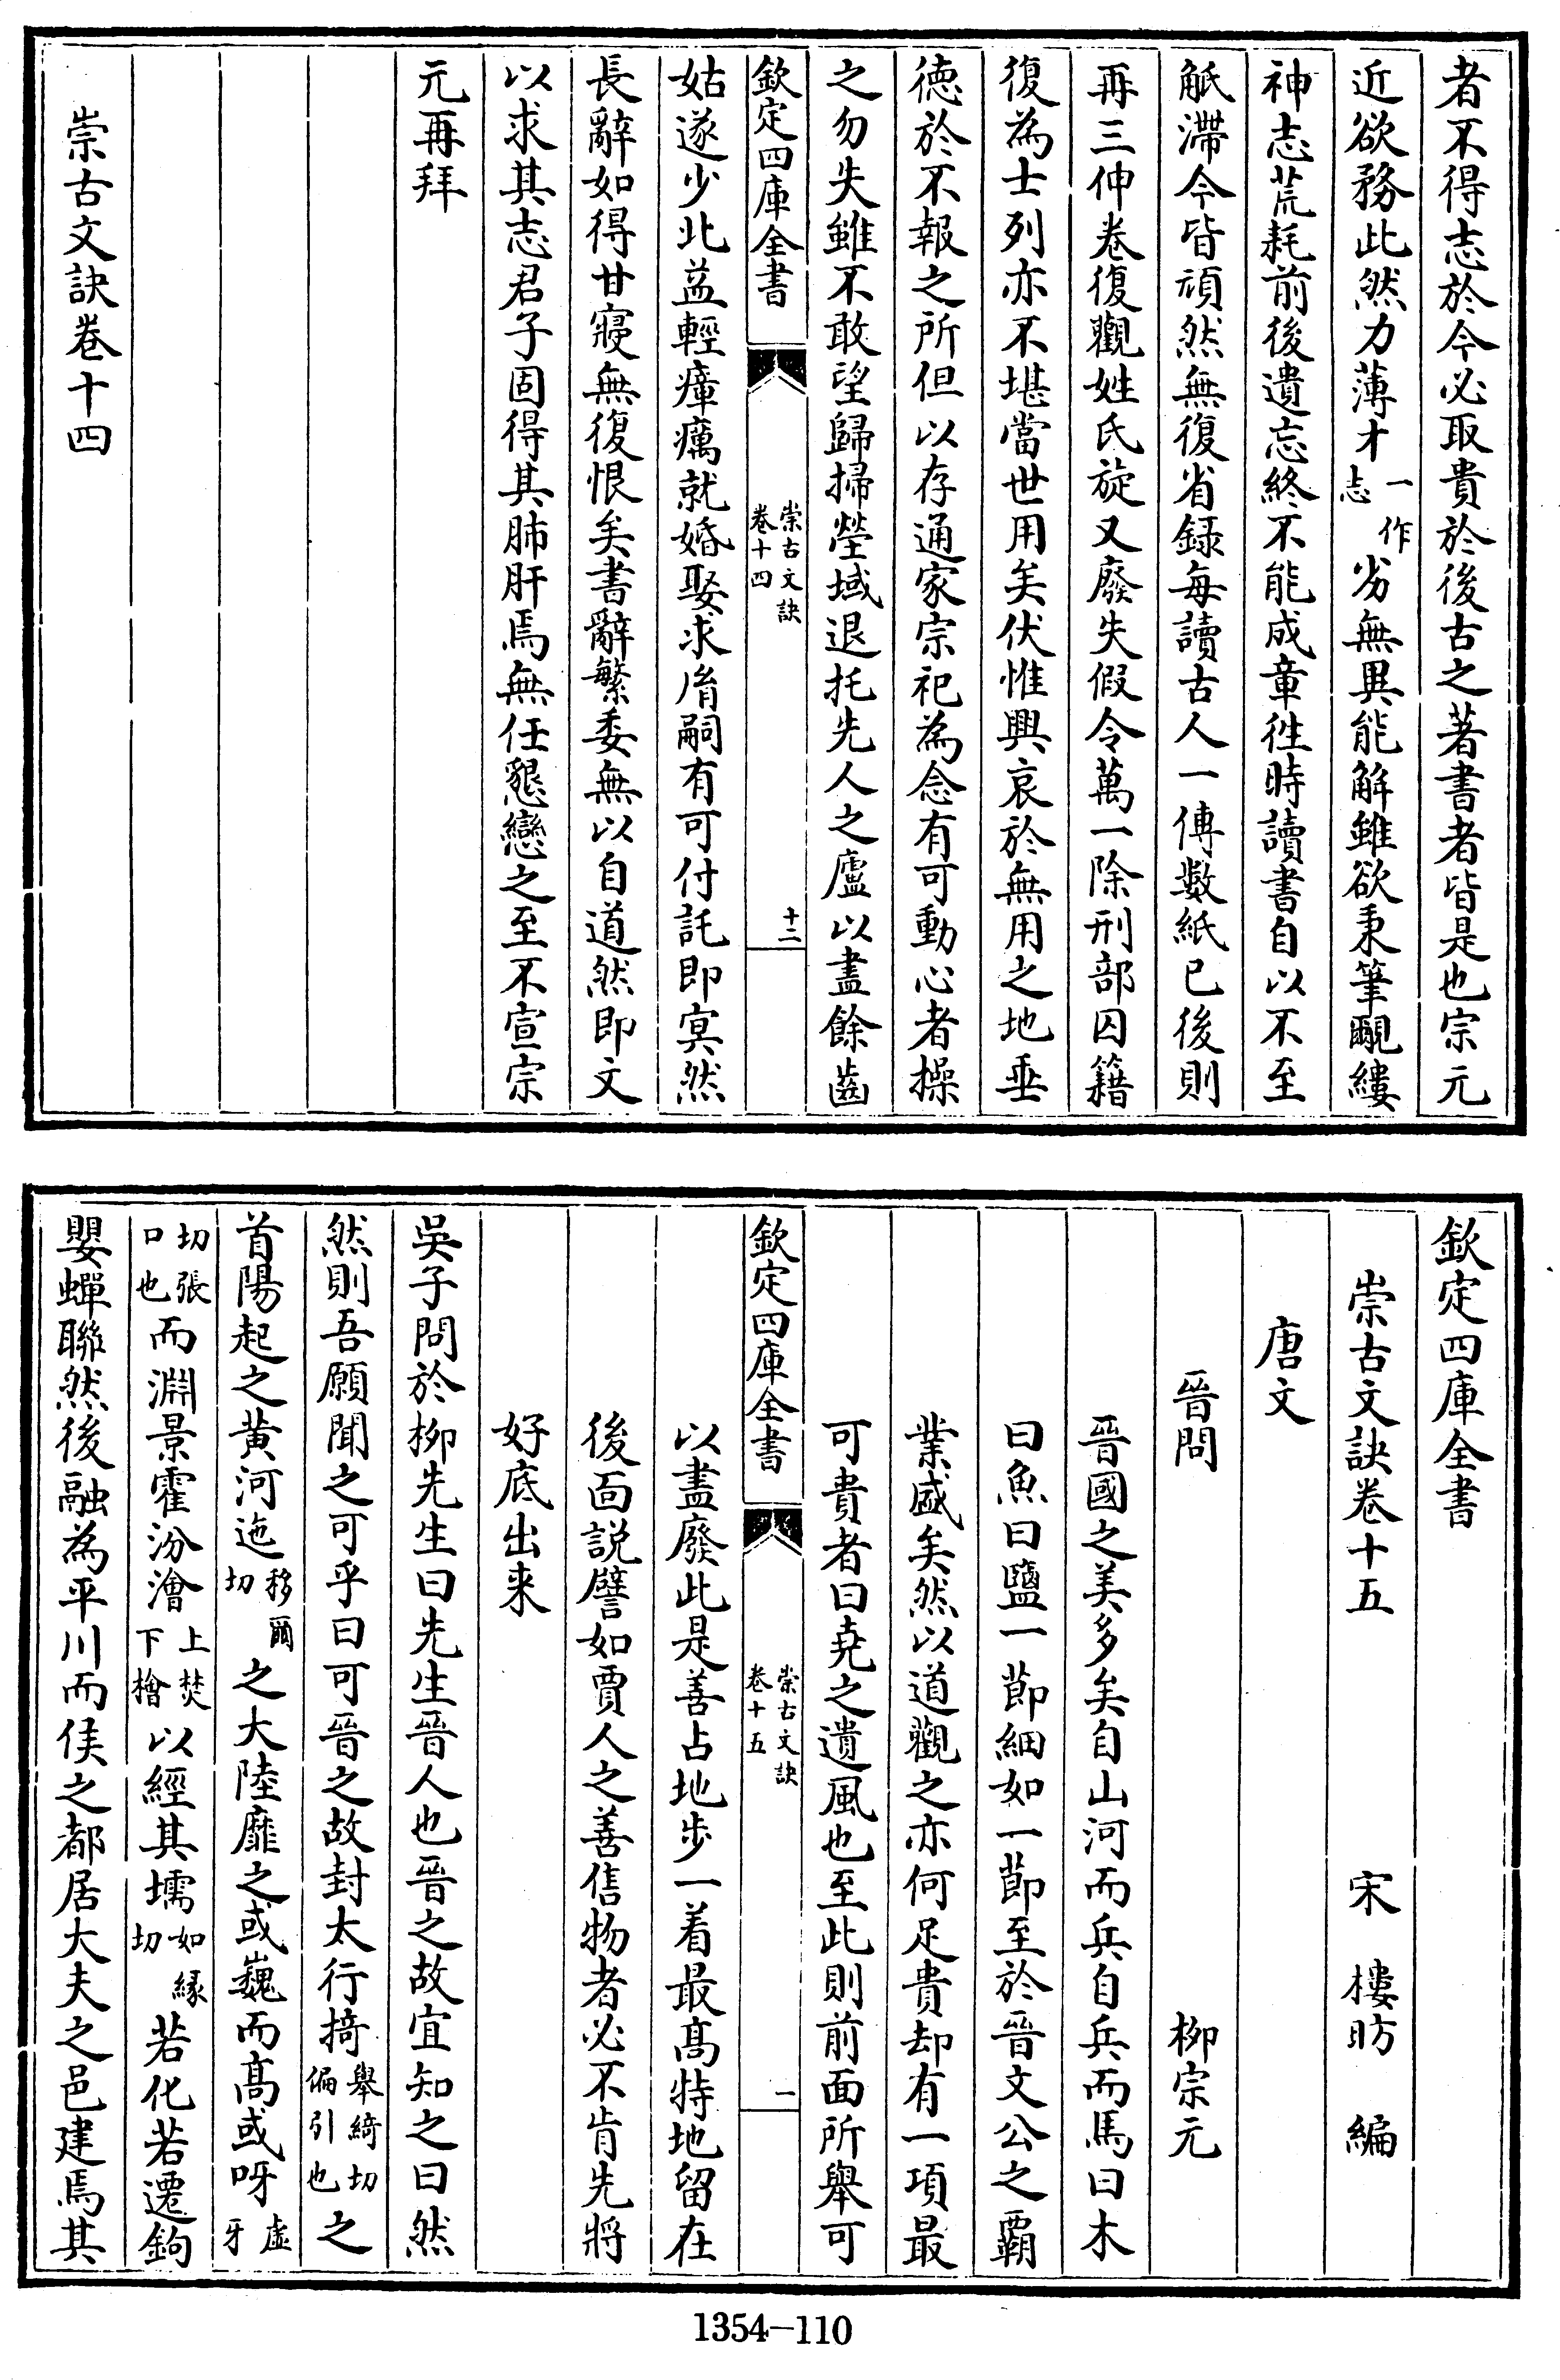 者不得志於今必取貴於後古之著書者皆是也宗元
近欲務此然力薄才一作志劣無異能解雖欲秉筆覼縷
神志荒耗前後遺忘終不能成章徃時讀書自以不至
觝滯今皆頑然無復省録每讀古人一傳數紙已後則
再三伸卷復觀姓氏旋又廢失假令萬一除刑部囚籍
復為士列亦不堪當世用矣伏惟興哀於無用之地垂
德於不報之所但以存通家宗祀為念有可動心者操
之勿失雖不敢望歸掃塋域退托先人之廬以盡餘齒
欽定四庫全書 崇古文訣卷十四 十二
姑遂少北益輕瘴癘就婚娶求胤嗣有可付託即冥然
長辭如得甘寢無復恨矣書辭繁委無以自道然即文
以求其志君子固得其肺肝焉無任懇戀之至不宣宗
元再拜
崇古文訣卷十四
欽定四庫全書
崇古文訣卷十五 宋 樓昉 編
唐文
晉問 柳宗元
晉國之美多矣自山河而兵自兵而馬曰木
曰魚曰鹽一節細如一節至於晉文公之霸
業盛矣然以道觀之亦何足貴却有一項最
可貴者曰堯之遺風也至此則前面所舉可
欽定四庫全書 崇古文訣卷十五 一
以盡廢此是善占地步一着最高特地留在
後面説譬如賈人之善售物者必不肯先將
好底出来
吳子問於柳先生曰先生晉人也晉之故宜知之曰然
然則吾願聞之可乎曰可晉之故封太行掎舉綺切偏引也之
首陽起之黄河迤移爾切之大陸靡之或巍而高或呀虚牙
切張口也而淵景霍汾澮上焚下檜以經其壖如緣切若化若遷鉤
嬰蟬聯然後融為平川而侯之都居大夫之邑建焉其
1354-110